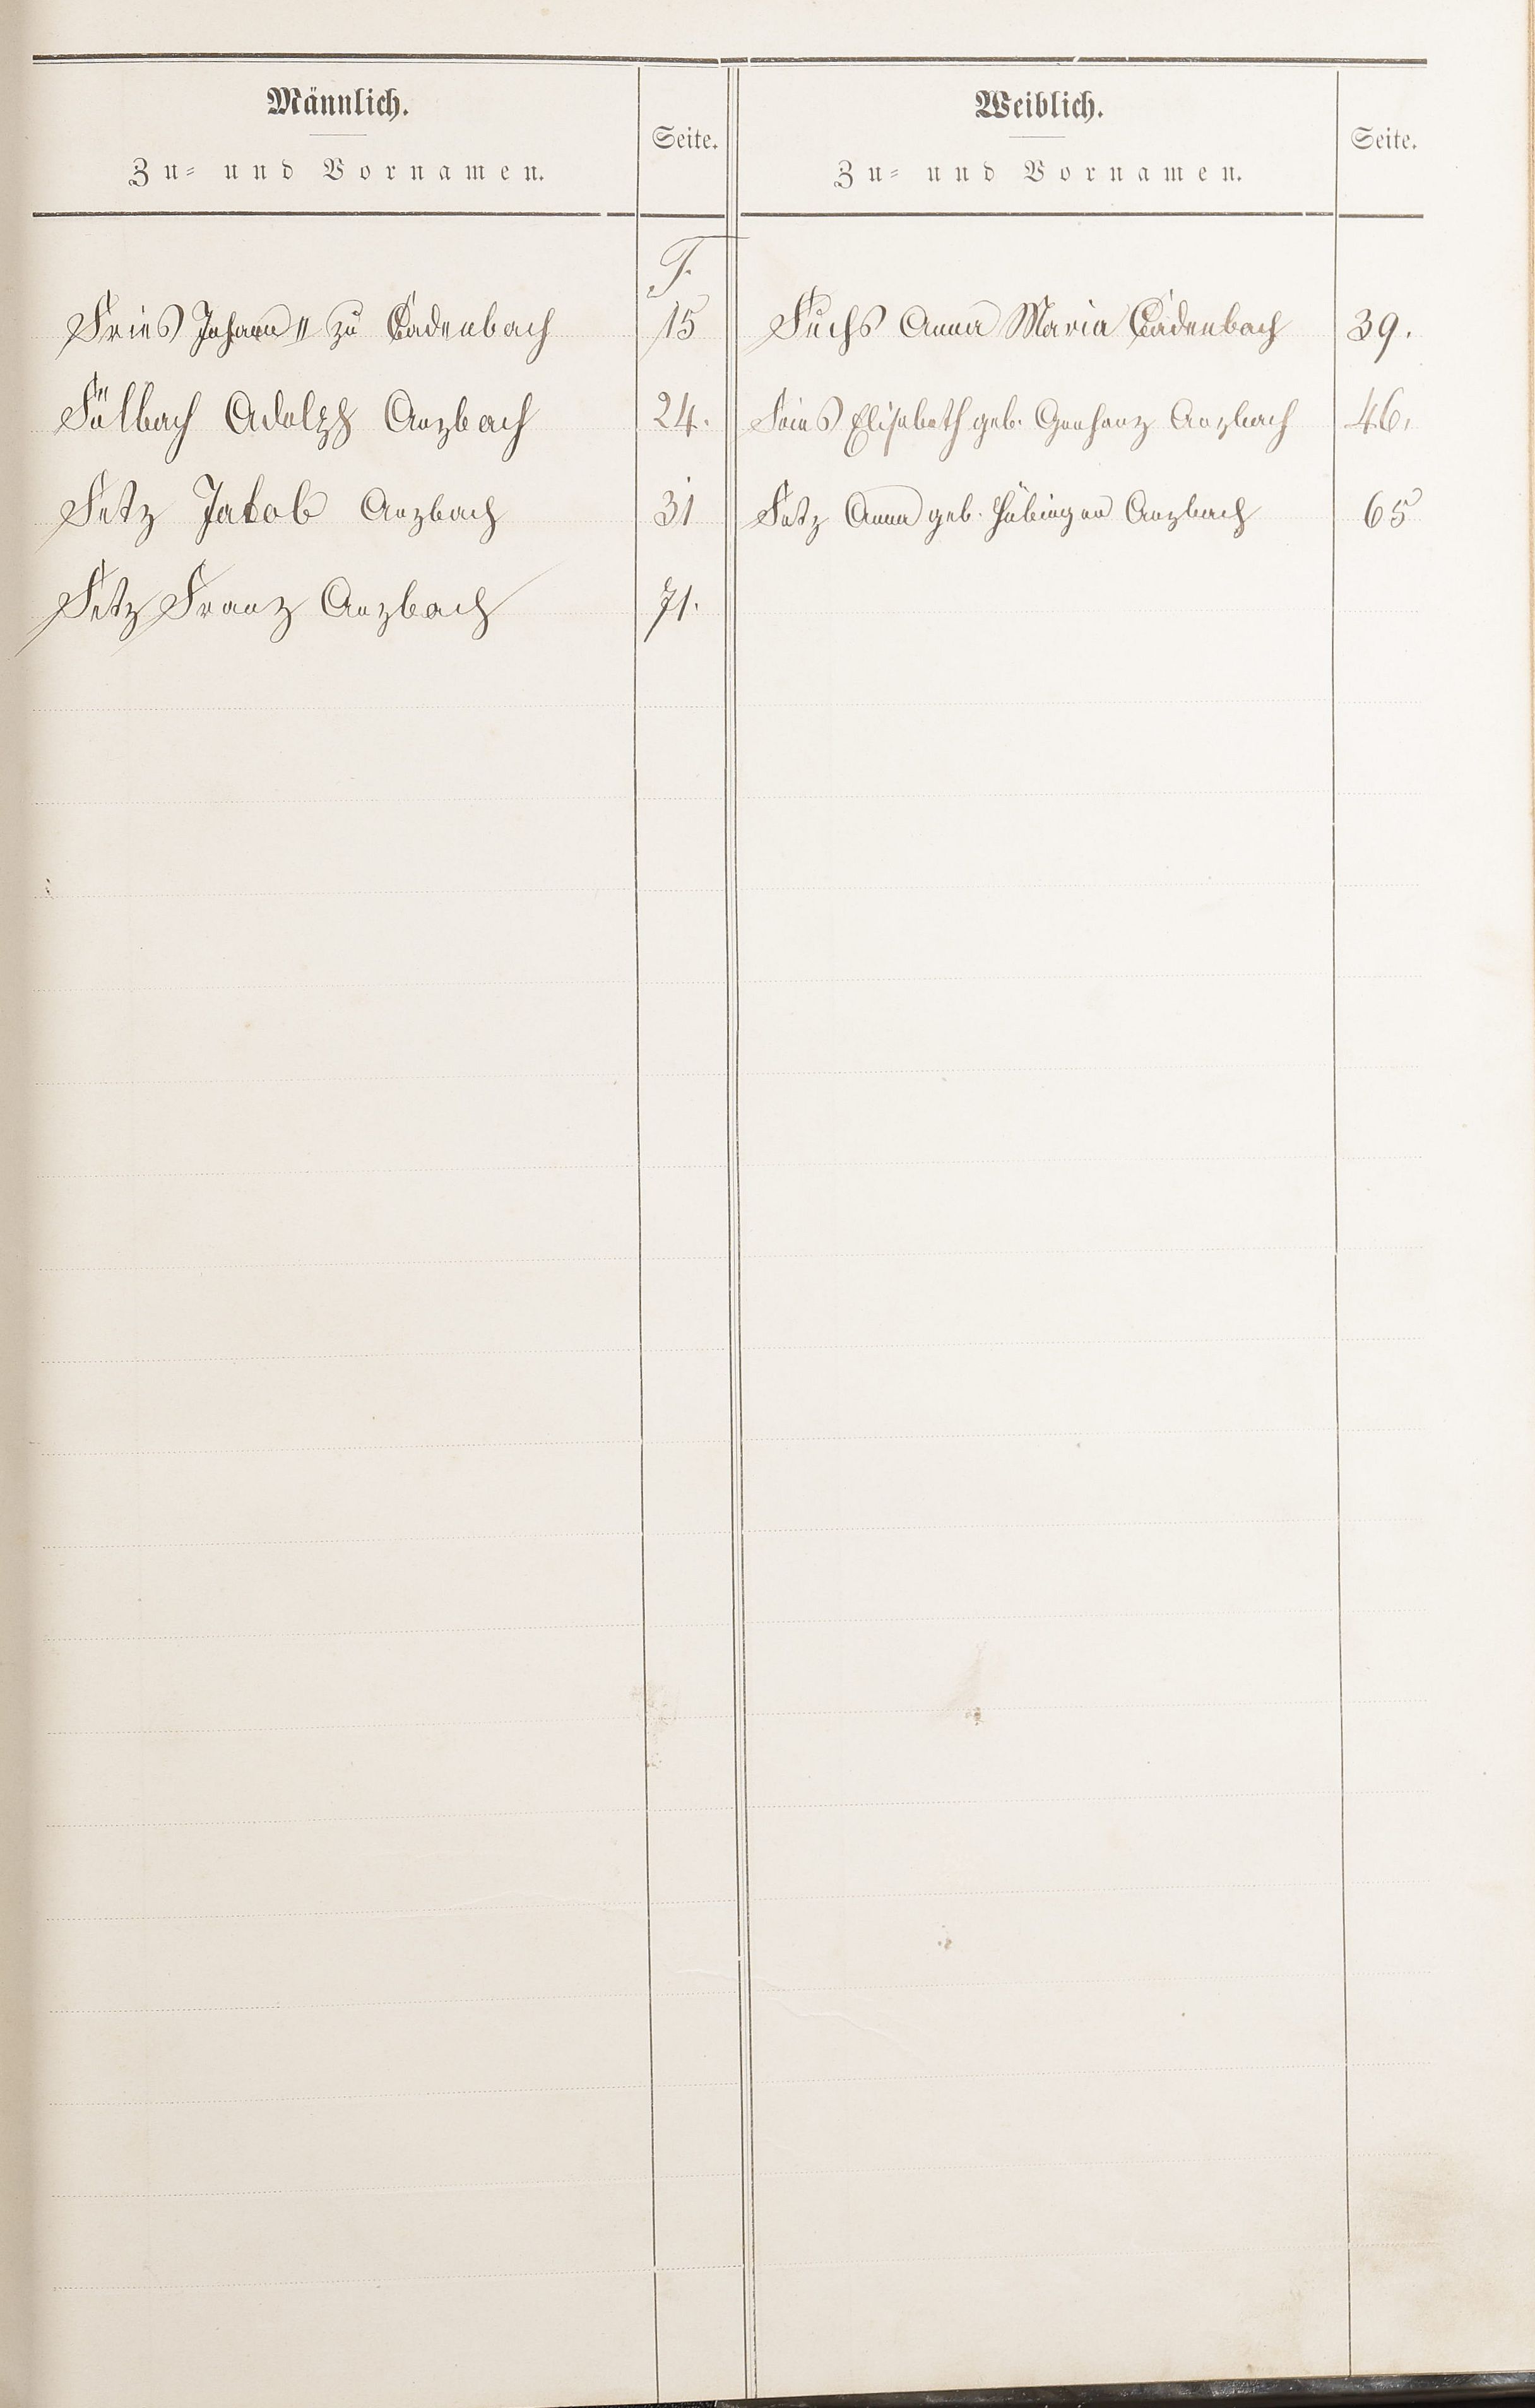 Männlich.
Zu= und Vornamen.
Seite.
Weiblich.
Zu= und Vornamen.
Seite.
F.
Fries Johann II zu Cadenbach 15
Fuchs Anna Maria Cadenbach 39.
Fülbach Adolph Arzbach 24.
Fries Elisabeth geb. Arzbach 46.
Fetz Jakob Arzbach 31
Fetz Anna geb. Hübinger Arzbach 65
Fetz Franz Arzbach 71.